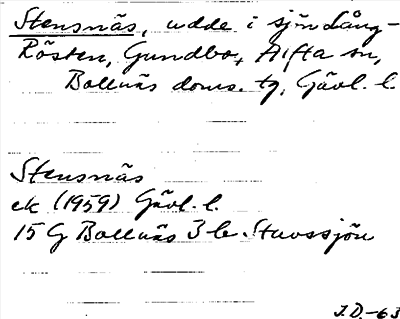 Stensnäs, udde i sjön Lång-
Rösten, Gundbo, Alfta sn,
Bollnäs doms. tg, Gävl. l.
Stensnäs
ek (1959) Gävl. l.
15 G Bollnäs 3 b Stuvssjön
J.D.-63